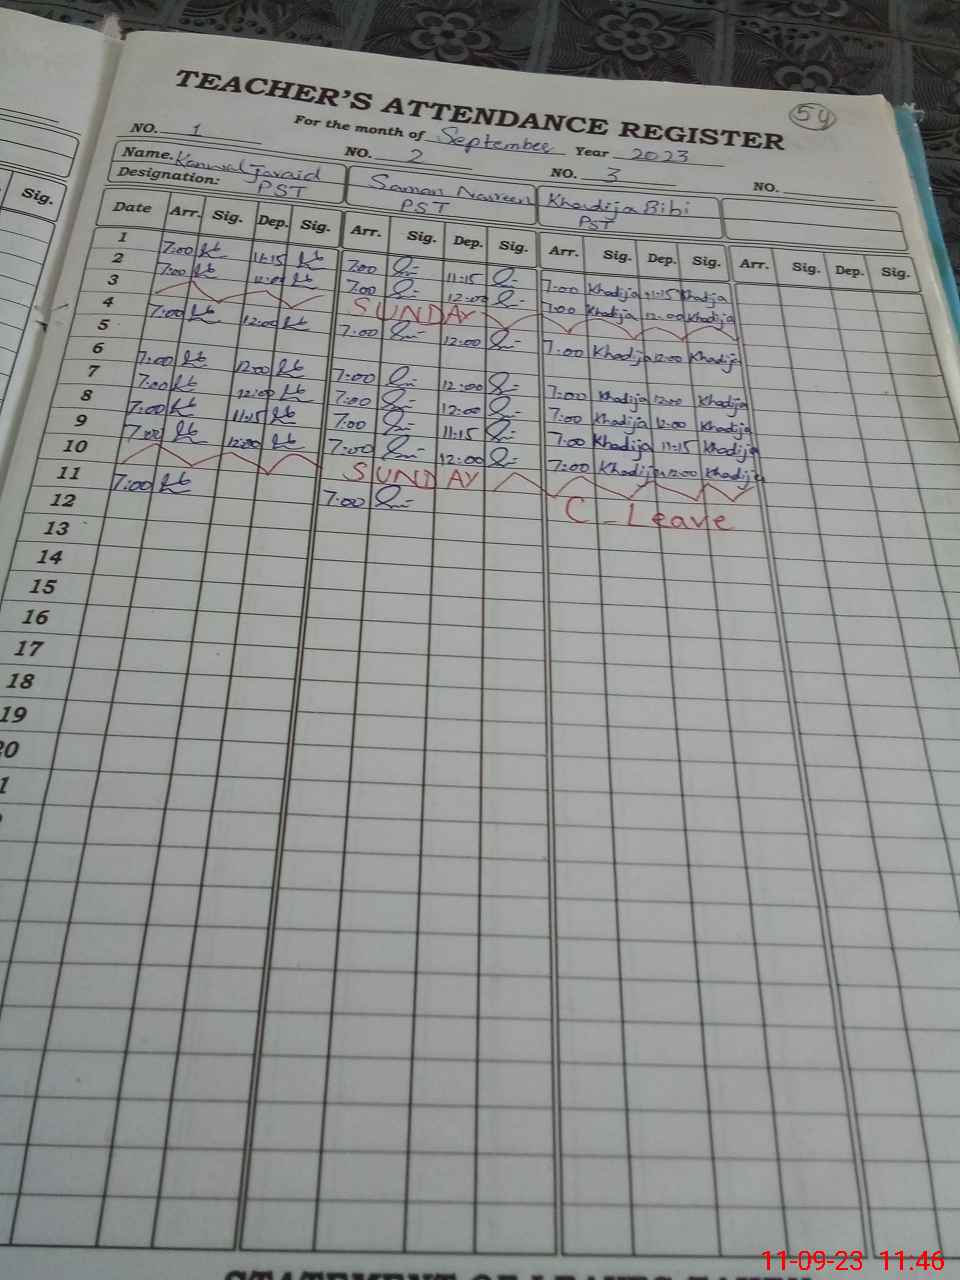 TEACHER'S ATTENDANCE REGISTER
54
For the month of September Year 2023
NO. 1 NO. 2 NO. 3 NO.
Name. Kanwal Javaid Saman Nasreen Khadija Bibi
Designation: PST PST PST
Sig.
Date Arr. Sig. Dep. Sig. Arr. Sig. Dep. Sig. Arr. Sig. Dep. Sig. Arr. Sig. Dep. Sig.
1 7:00 11:15 7:00 11:15 7:00 Khadija 11:15 Khadija
2 7:00 12:00 7:00 12:00 7:00 Khadija 12:00 Khadija
3 SUNDAY
4 7:00 12:00 7:00 12:00 7:00 Khadija 12:00 Khadija
5
6 7:00 12:00 7:00 12:00 7:00 Khadija 12:00 Khadija
7 7:00 12:00 7:00 12:00 7:00 Khadija 12:00 Khadija
8 7:00 11:15 7:00 11:15 7:00 Khadija 11:15 Khadija
9 7:00 12:00 7:00 12:00 7:00 Khadija 12:00 Khadija
10 SUNDAY
11 7:00 7:00 C-Leave
12
13
14
15
16
17
18
19
20
11-09-23 11:46